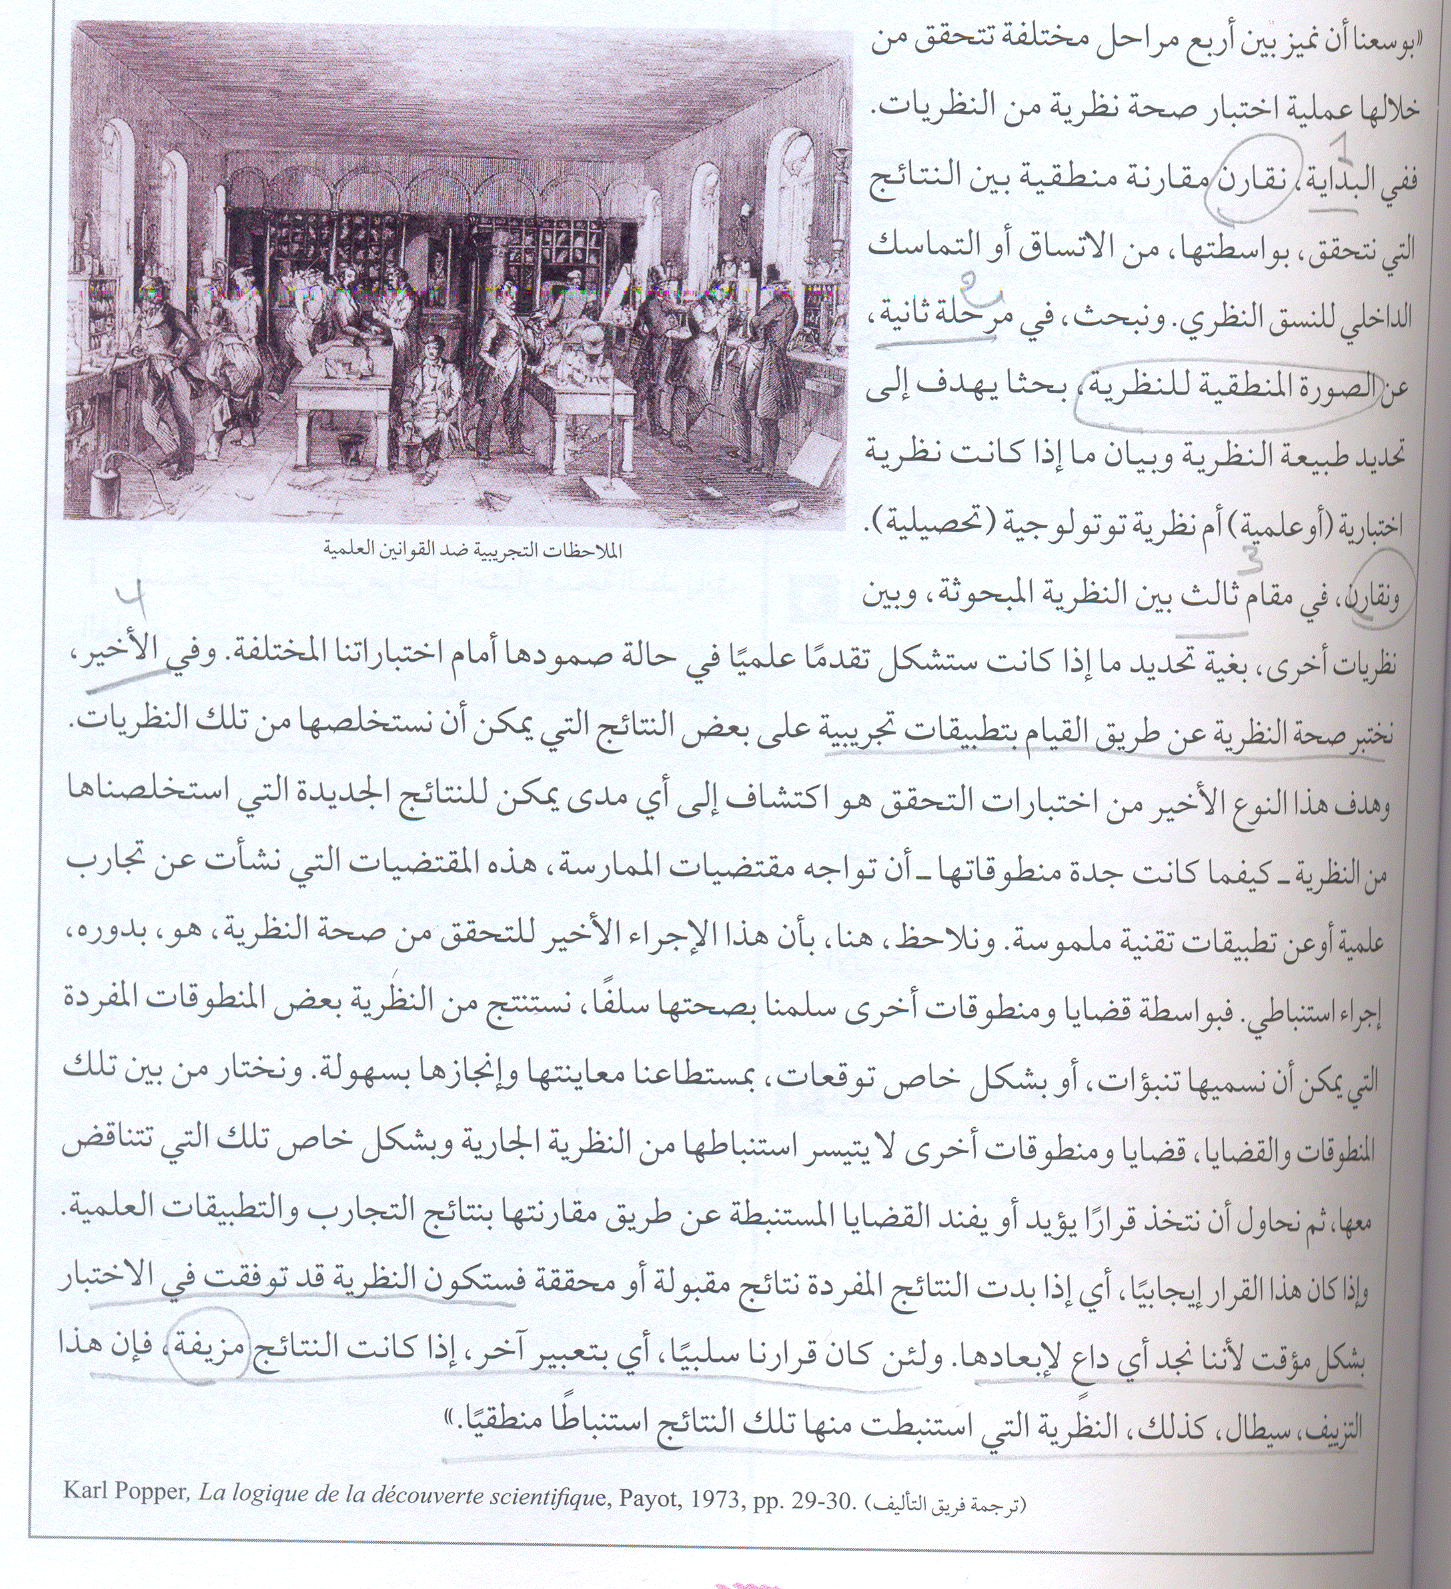 «بوسعنا أن نميز بين أربع مراحل مختلفة تتحقق من
خلالها عملية اختبار صحة نظرية من النظريات.
1
ففي البداية، نقارن مقارنة منطقية بين النتائج
التي نتحقق، بواسطتها، من الاتساق أو التماسك
2
الداخلي للنسق النظري. ونبحث، في مرحلة ثانية،
عن الصورة المنطقية للنظرية، بحثا يهدف إلى
تحديد طبيعة النظرية وبيان ما إذا كانت نظرية
اختبارية (أو علمية) أم نظرية توتولوجية (تحصيلية).
الملاحظات التجريبية ضد القوانين العلمية
3
ونقارن، في مقام ثالث بين النظرية المبحوثة، وبين
4
نظريات أخرى، بغية تحديد ما إذا كانت ستشكل تقدمًا علميًا في حالة صمودها أمام اختباراتنا المختلفة. وفي الأخير،
نختبر صحة النظرية عن طريق القيام بتطبيقات تجريبية على بعض النتائج التي يمكن أن نستخلصها من تلك النظريات.
وهدف هذا النوع الأخير من اختبارات التحقق هو اكتشاف إلى أي مدى يمكن للنتائج الجديدة التي استخلصناها
من النظرية ـ كيفما كانت جدة منطوقاتها ـ أن تواجه مقتضيات الممارسة، هذه المقتضيات التي نشأت عن تجارب
علمية أو عن تطبيقات تقنية ملموسة. ونلاحظ، هنا، بأن هذا الإجراء الأخير للتحقق من صحة النظرية، هو، بدوره،
إجراء استنباطي. فبواسطة قضايا ومنطوقات أخرى سلمنا بصحتها سلفًا، نستنتج من النظرية بعض المنطوقات المفردة
التي يمكن أن نسميها تنبؤات، أو بشكل خاص توقعات، بمستطاعنا معاينتها وإنجازها بسهولة. ونختار من بين تلك
المنطوقات والقضايا، قضايا ومنطوقات أخرى لا يتيسر استنباطها من النظرية الجارية وبشكل خاص تلك التي تتناقض
معها، ثم نحاول أن نتخذ قرارًا يؤيد أو يفند القضايا المستنبطة عن طريق مقارنتها بنتائج التجارب والتطبيقات العلمية.
وإذا كان هذا القرار إيجابيًا، أي إذا بدت النتائج المفردة نتائج مقبولة أو محققة فستكون النظرية قد توفقت في الاختبار
بشكل مؤقت لأننا نجد أي داعٍ لإبعادها. ولئن كان قرارنا سلبيًا، أي بتعبير آخر، إذا كانت النتائج مزيفة، فإن هذا
التزييف، سيطال، كذلك، النظرية التي استنبطت منها تلك النتائج استنباطًا منطقيًا.»
Karl Popper, La logique de la découverte scientifique, Payot, 1973, pp. 29-30. (ترجمة فريق التأليف)